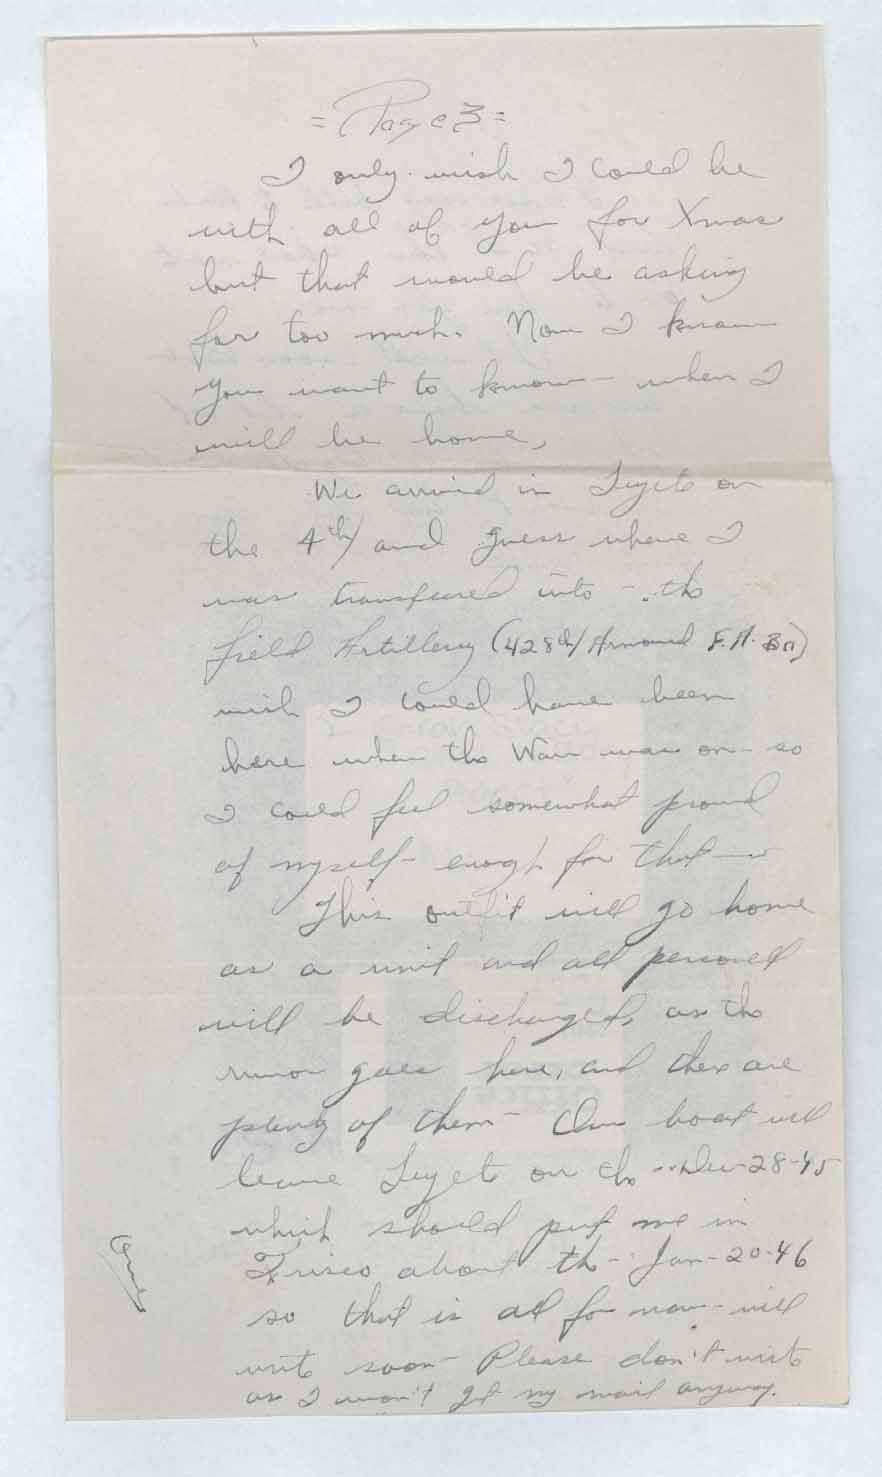 = Page 3 =
I only wish I could be
with all of you for Xmas
but that would be asking
far too much. Now I know
you want to know - when I
will be home,
We arrived in Leyete on
the 4th/ and guess where I
was transfered into - the
field Artillery (428th/ Armored F.A. Bn)
wish I could have been
here when the War was on - so
I could feel somewhat proud
of myself - enogh for that -
This outfit will go home
as a unit and all personell
will be discharged, as the
rumor goes here, and there are
plenty of them - Our boat will
leave Leyete on the - Dec-28-45
which should put me in
Frisco about the - Jan-20-46
so that is all for now - will
write soon - Please don't write
as I won't get my mail anyway.